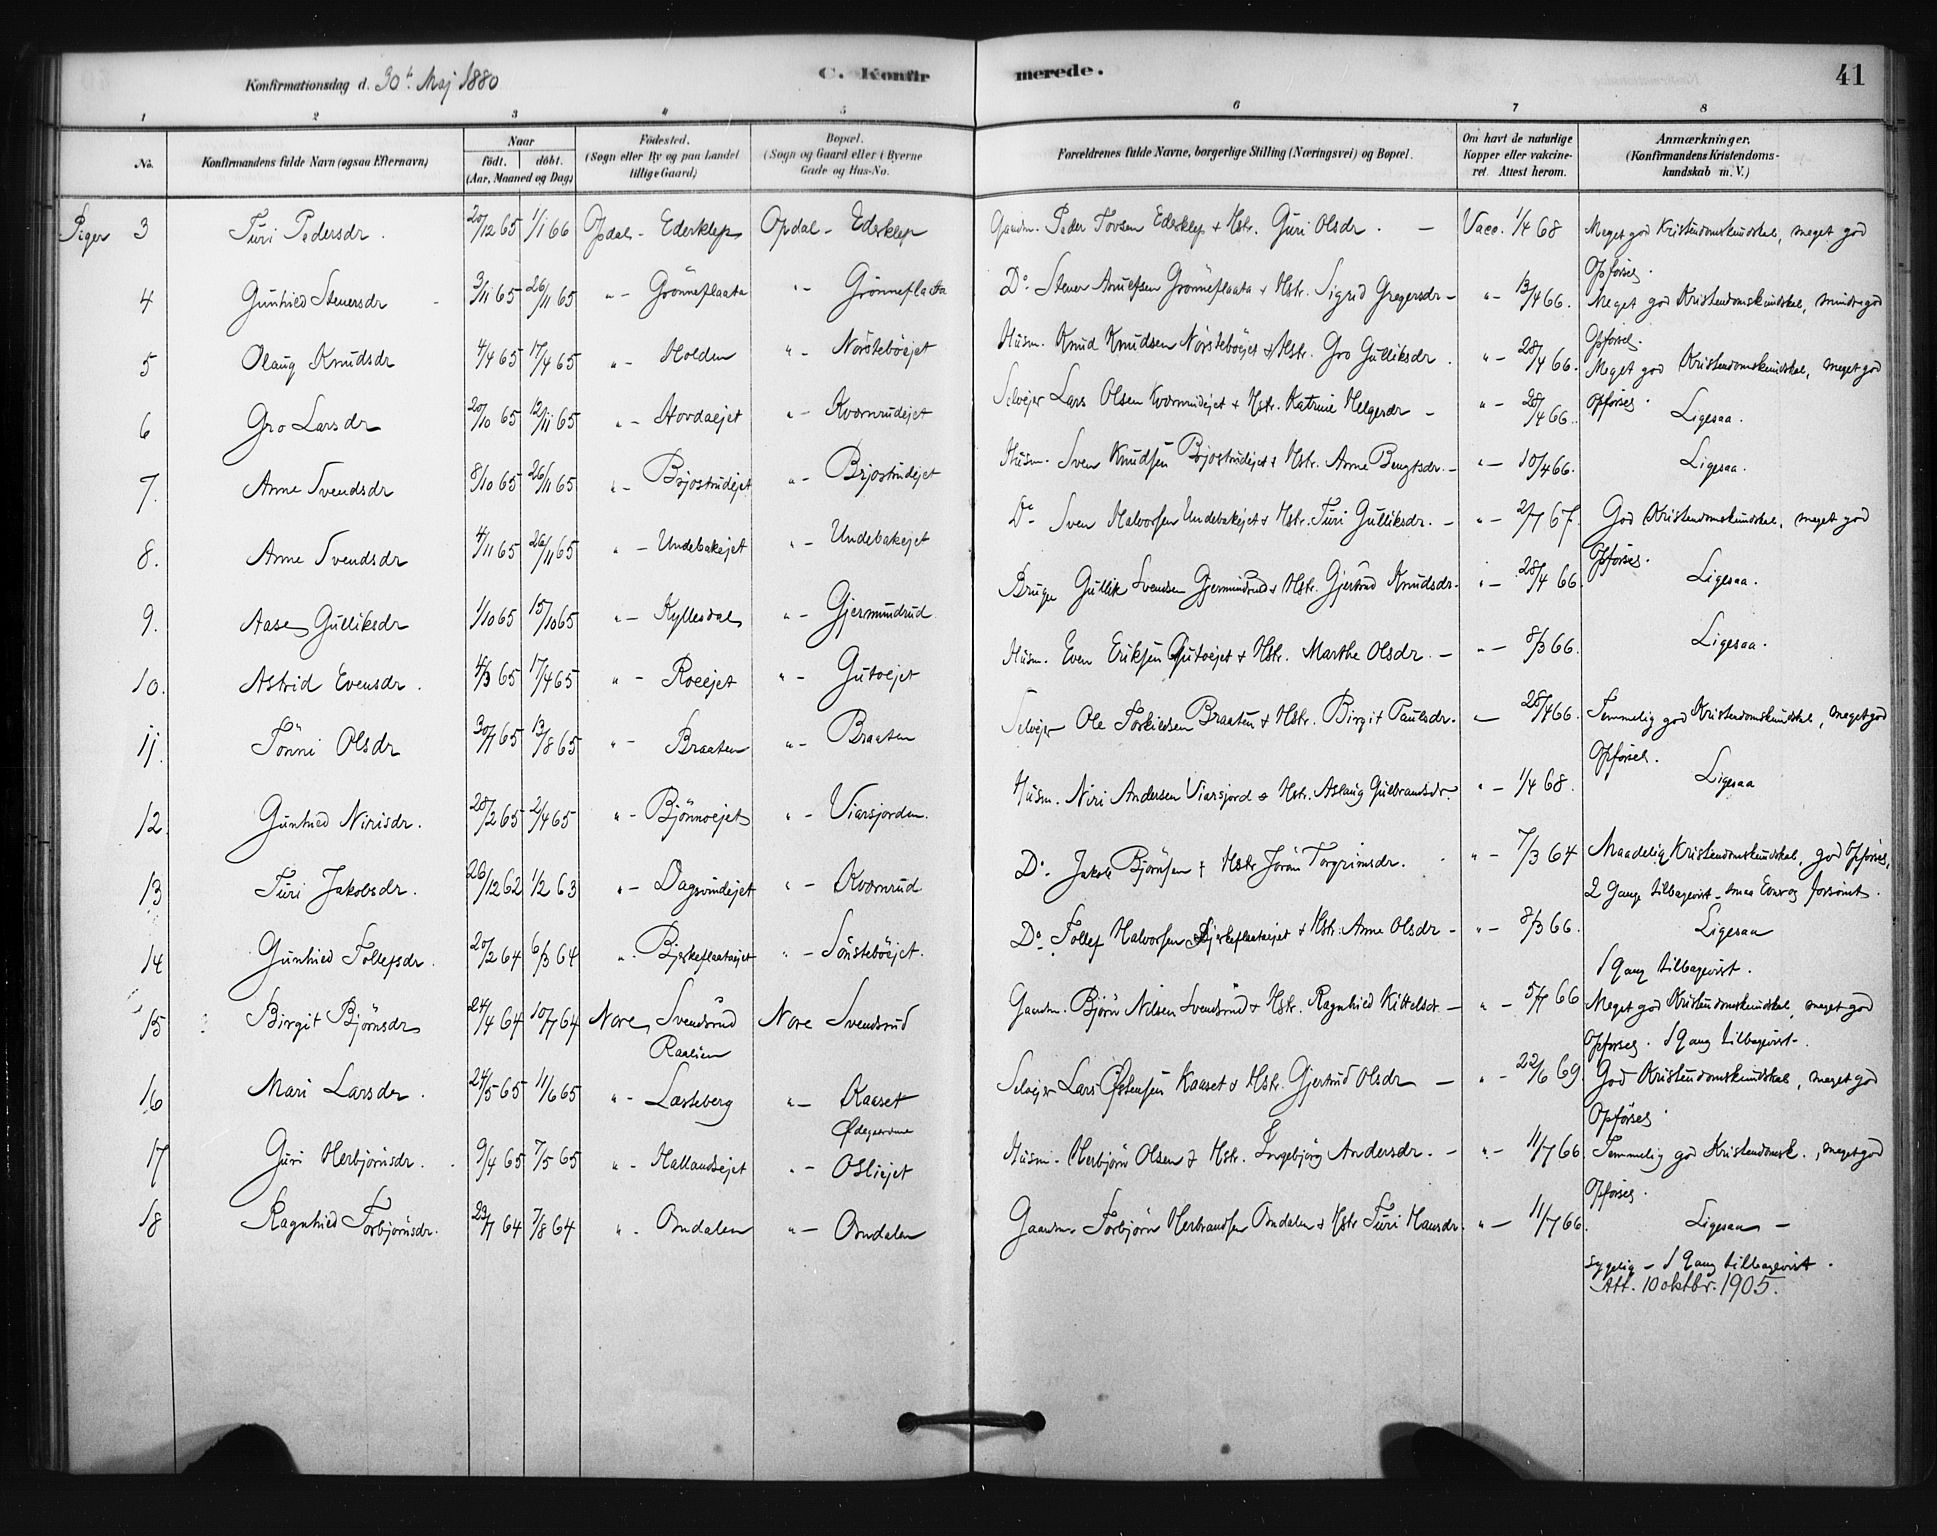 Konfirmationsdag d. 30te Maj 1880 C. Konfir merede. 41
1 2 3 4 5 6 7 8
No. Konfirmandens fulde Navn (ogsaa Efternavn) Naar födt. döbt. (Aar, Maaned og Dag) Födested. (Sogn eller By og paa Landet tillige Gaard) Bopæl. (Sogn og Gaard eller i Byerne Gade og Hus-No. Forældrenes fulde Navne, borgerlige Stilling (Næringsvei) og Bopæl. Om havt de naturlige Kopper eller vakcineret. Attest herom. Anmærkninger. (Konfirmandens Kristendomskundskab m. V.)
Piger 3 Turi Pedersdr. 20/12 65 1/1 66 Opdal - Ederklep Opdal - Ederklep Gaardm. Peder Tovsen Ederklep + Hstr. Guri Olsdr. - Vacc. 1/4 68 Meget god Kristendomskundskab, meget god
Opförsel.
4 Gunhild Steuersdr 3/11 65 26/11 65 " - Grönneflaata " - Grönneflaata Do Steuer Grönneflaata + Hstr. Sigrid Gregersdr - " - 13/4 66. Meget god Kristendomskundskab, mindre god
Opförsel.
5 Olaug Knudsdr 4/4 65 17/4 65 " - Holden " - Nörsteböejet Husm. Knud Knudsen Nörsteböejet + Hstr. Gro Gulliksdr. " - 28/4 66. Meget god Kristendomskundskab, meget god
opförsel.
6 Gro Larsdr 20/10 65 12/11 65 " - Hovdaejet " - Kvernrudejet Selvejer Lars Olsen Kvernrudejet + Hstr. Katrine Helgesdr - " - 28/4 66. Ligesaa.
7. Anne Svendsdr 8/10 65 26/11 65 " - Brjostrudejet " - Brjostrudejet Husm. Sven Knudsen Brjostrudejet + Hstr. Anne Bengtsdr. - " - 10/4 66. Ligesaa.
8. Anne Svendsdr 4/11 65 26/11 65 " - Undebakejet " - Undebakejet Do Sven Halvorsen Undebakejet + Hstr. Turi Gulliksdr. - " - 2/7 67. God Kristendomskundskab, meget god
Opförsel.
9. Aase Gulliksdr 1/10 65 15/10 65 " - Kyllesdal " - Gjermundrud Bruger Gullik Svensen Gjermundrud + Hstr. Gjertrud Knudsdr. " - 28/4 66 Ligesaa.
10. Astrid Evensdr. 4/3 65 17/4 65 " - Roeejet " - Gutvejet Husm. Even Eriksen Gutvejet + Hstr. Marthe Olsdr. - " - 8/3 66. Ligesaa.
11. Tönni Olsdr 30/7 65 13/8 65 " - Braaten " - Braaten Selvejer Ole Torkildsen Braaten + Hstr. Birgit Paulsdr. " - 28/4 66. Temmelig god Kristendomskundskab, meget god
Opförsel.
12. Gunhild Nirisdr. 28/2 65 2/4 65 " - Bjönnvejet " - Viarsjorden. Husm. Niri Andersen Viarsjord + Hstr. Aslaug Gulbrandsdr. " - 1/4 68. Ligesaa
13 Turi Jakobsdr. 26/12 62 1/2 63 " - Dagsvindejet " - Kvernrud Do. Jakob Björnsen + Hstr Jörån Torgrimsdr. " - 7/3 64 Maadelig Kristendomskundskab, god Opförsel,
2 Gange tilbagevist - forsömt.
14 Gunhild Tollefsdr. 20/2 64 6/3 64 " - Bjerkeflaataejet " - Sönsteböejet. Do. Tollef Halvorsen Bjerkeflaataejet + Hstr. Anne Olsdr - " - 8/3 66. Ligesaa
1 Gang tilbagevist.
15 Birgit Björnsdr 24/4 64 10/7 64 Nore, Svendsrud Nore Svendsrud Gaardm. Björn Nilsen Svendsrud + Hstr. Ragnhild Kittelsdr - " - 5/7 66 Meget god Kristendomskundskab, meget god
Raalien Opförsel. 1 Gang tilbagevist.
16 Mari Larsdr. 24/5 65 11/6 65 " - Læsteberg " - Kaaset Selvejer Lars Östensen Kaaset + Hstr. Gjertrud Olsdr - " - 22/6 69 God Kristendomskundskab, meget god
Ödegaardene Opförsel.
17 Guri Herbjörnsdr. 9/4 65 7/5 65 " - Hallandsejet " - Osliejet Husm. Herbjörn Olsen + Hstr. Ingebjörg Andersdr. - " - 11/7 66 Temmelig god Kristendomsk., meget god
Opförsel.
18 Ragnhild Torbjörnsdr. 23/7 64 7/8 64 " - Omdalen " - Omdalen Gaardm. Torbjörn Herbrandsen Omdalen + Hstr Turi Hansdr. " - 11/7 66. Ligesaa -
sygelig - 1 Gang tilbagevist.
Att. 10 oktbr. 1905.